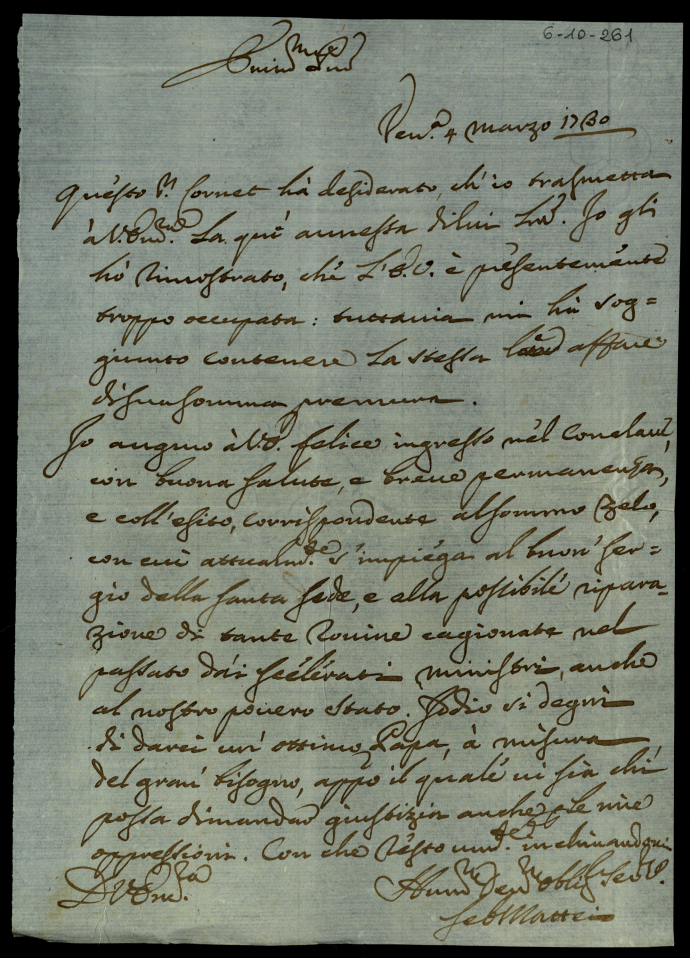 6-10-261
Emin.mo Sig.
Ven.a 4 Marzo 1730
Questo Sr. Cornet hà desiderato, ch'io trasmetta
à V. Em.a la quì annessa di lui Lra. Io gli
hò rimostrato, che L'E.V. è presentemente
troppo occupata: tuttavia mi hà sog=
giunto contenere la stessa affare
di sua somma premura.
Io auguro à V.E. felice ingresso nel Conclave,
con buona salute, e breve permanenza,
e coll'esito, corrispondente al sommo zelo,
con cui attualm.te s'impiega al buon ser=
gio della Santa Sede, e alla possibile ripara=
zione di tante rovine cagionate nel
passato dai scelerati ministri, anche
al nostro povero stato. Iddio si degni
di darci un' ottimo Papa, à misura
del gran' bisogno, appò il quale vi sia chi
possa dimandar giustizia anche p. le mie
oppressioni. Con che resto um.te inchinandomi
D.V.Em.za
Hum.mo Dev.mo Obblig. Ser.
Seb Mattei